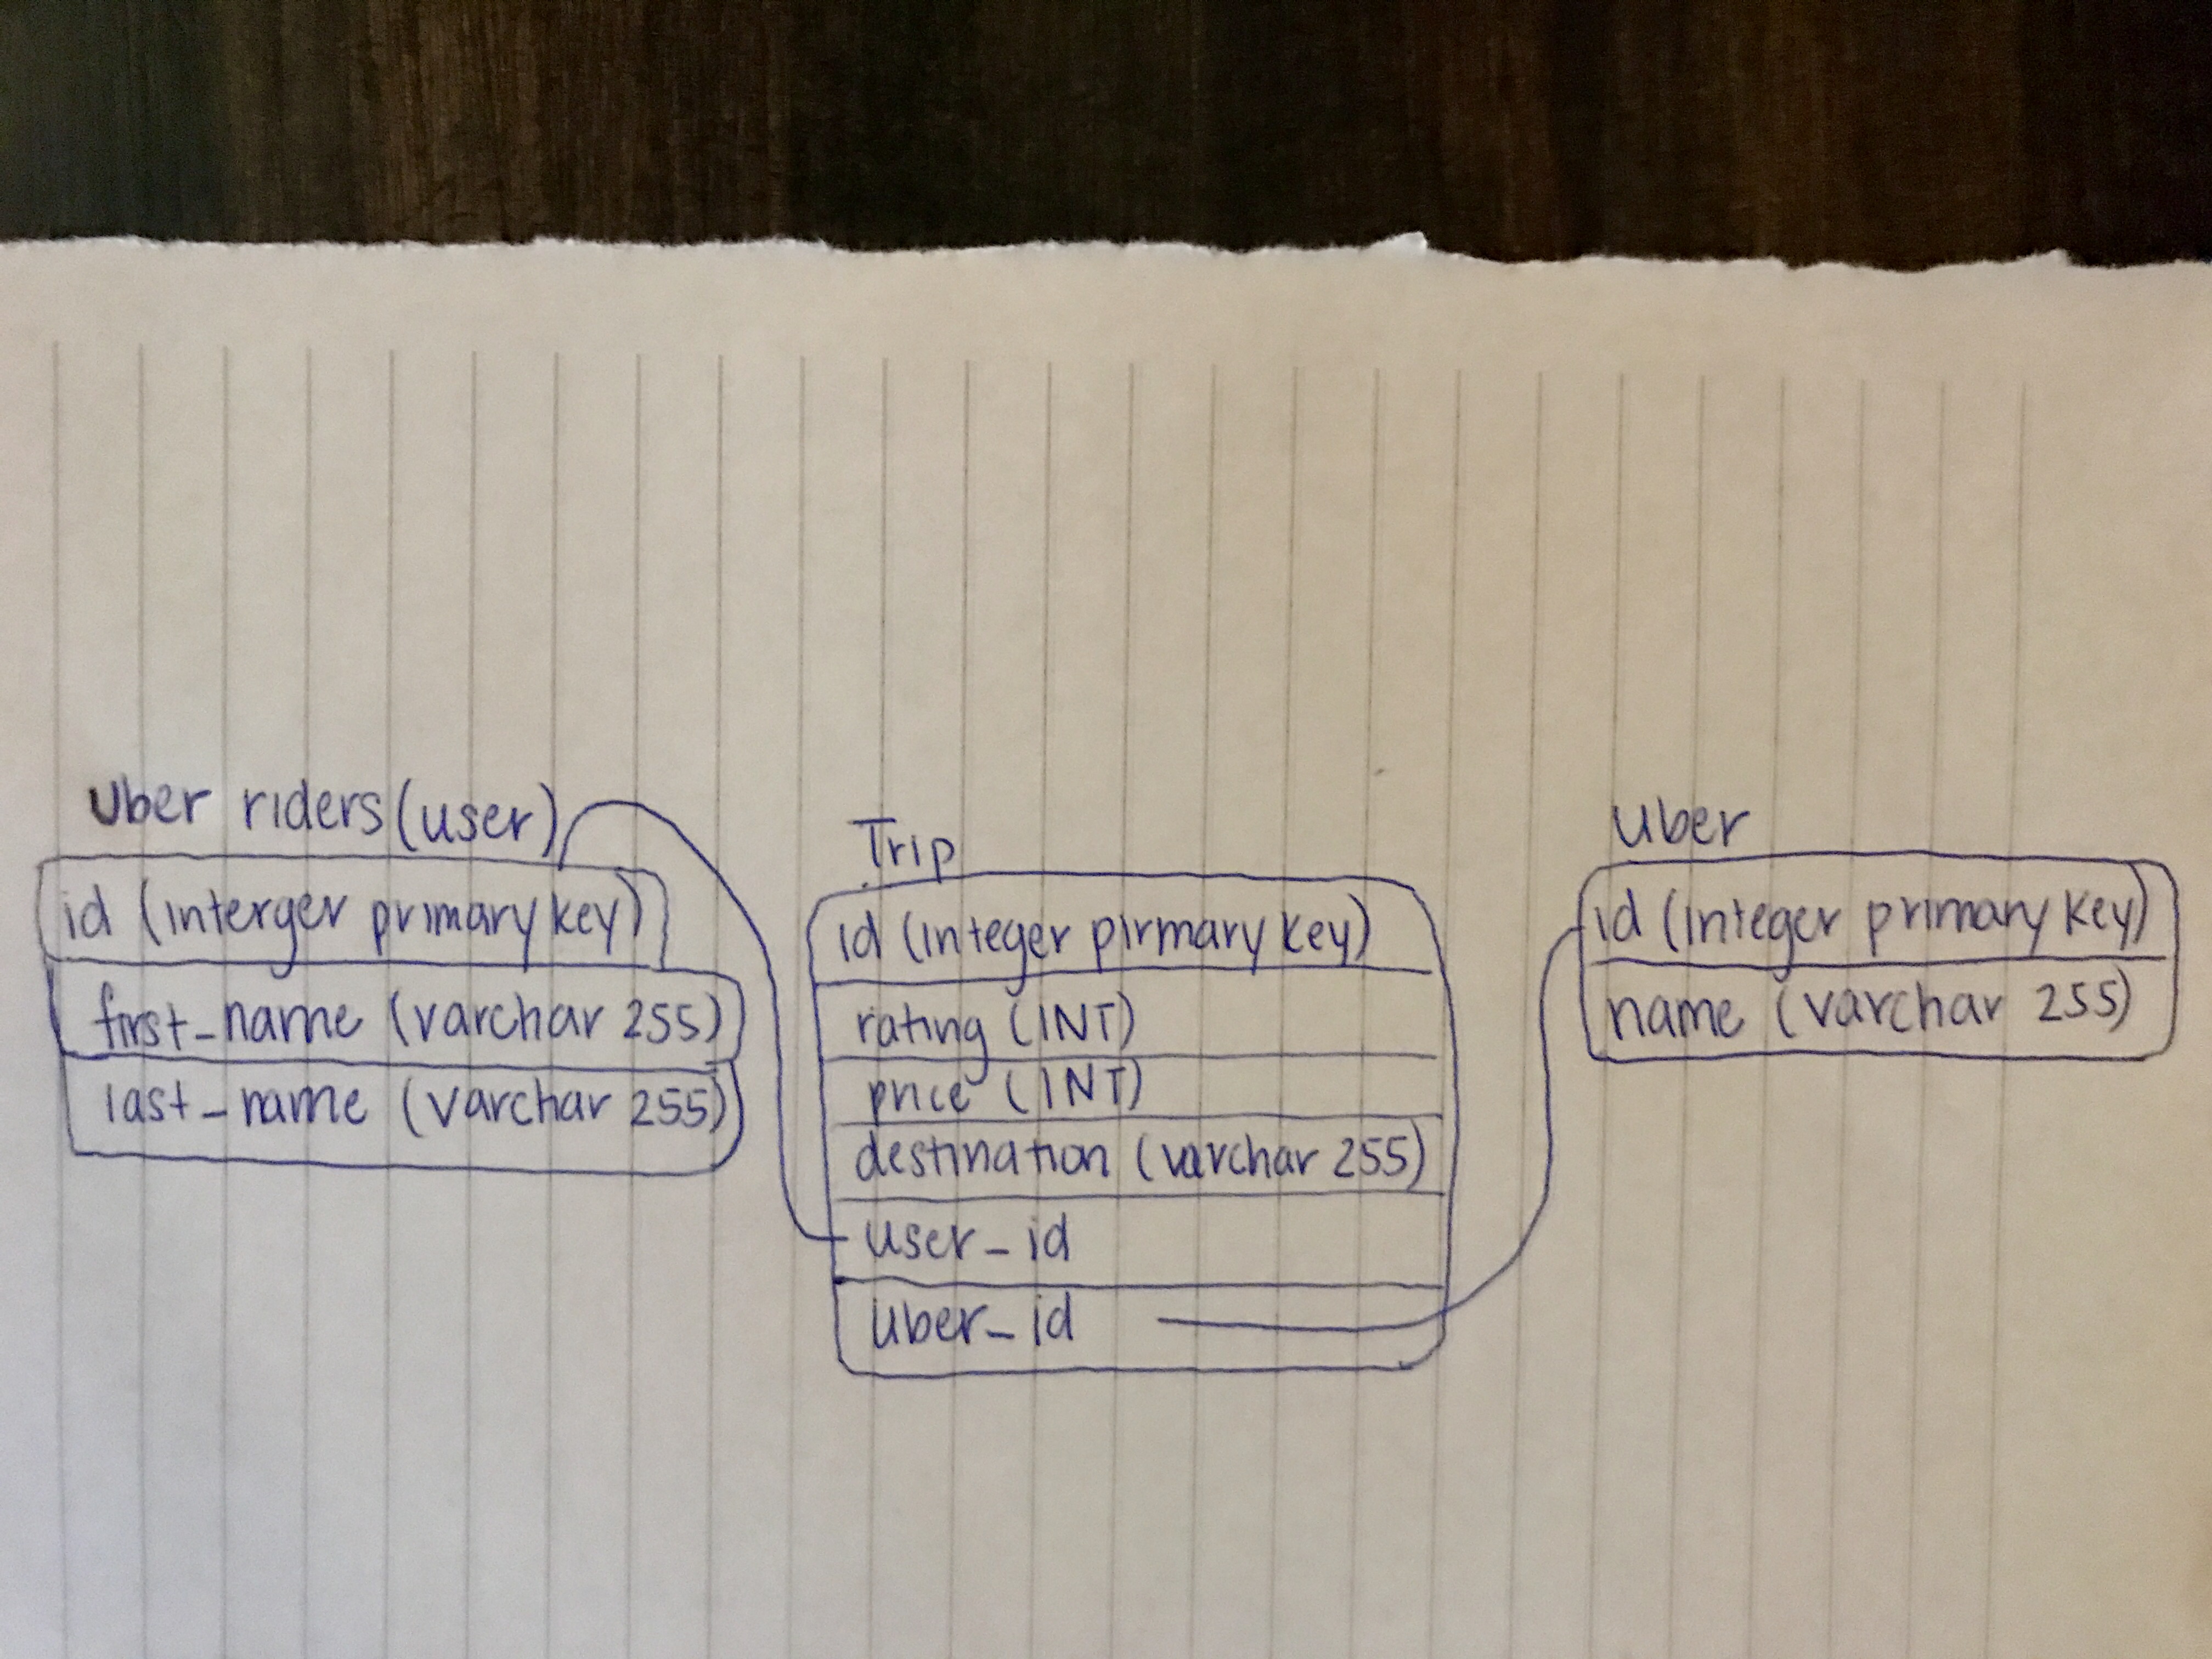 Uber riders (user)
id (interger primary key)
first_name (varchar 255)
last_name (varchar 255)
Trip
id (integer pirmary key)
rating (INT)
price (INT)
destination (varchar 255)
user_id
uber_id
Uber
id (integer primary key)
name (varchar 255)